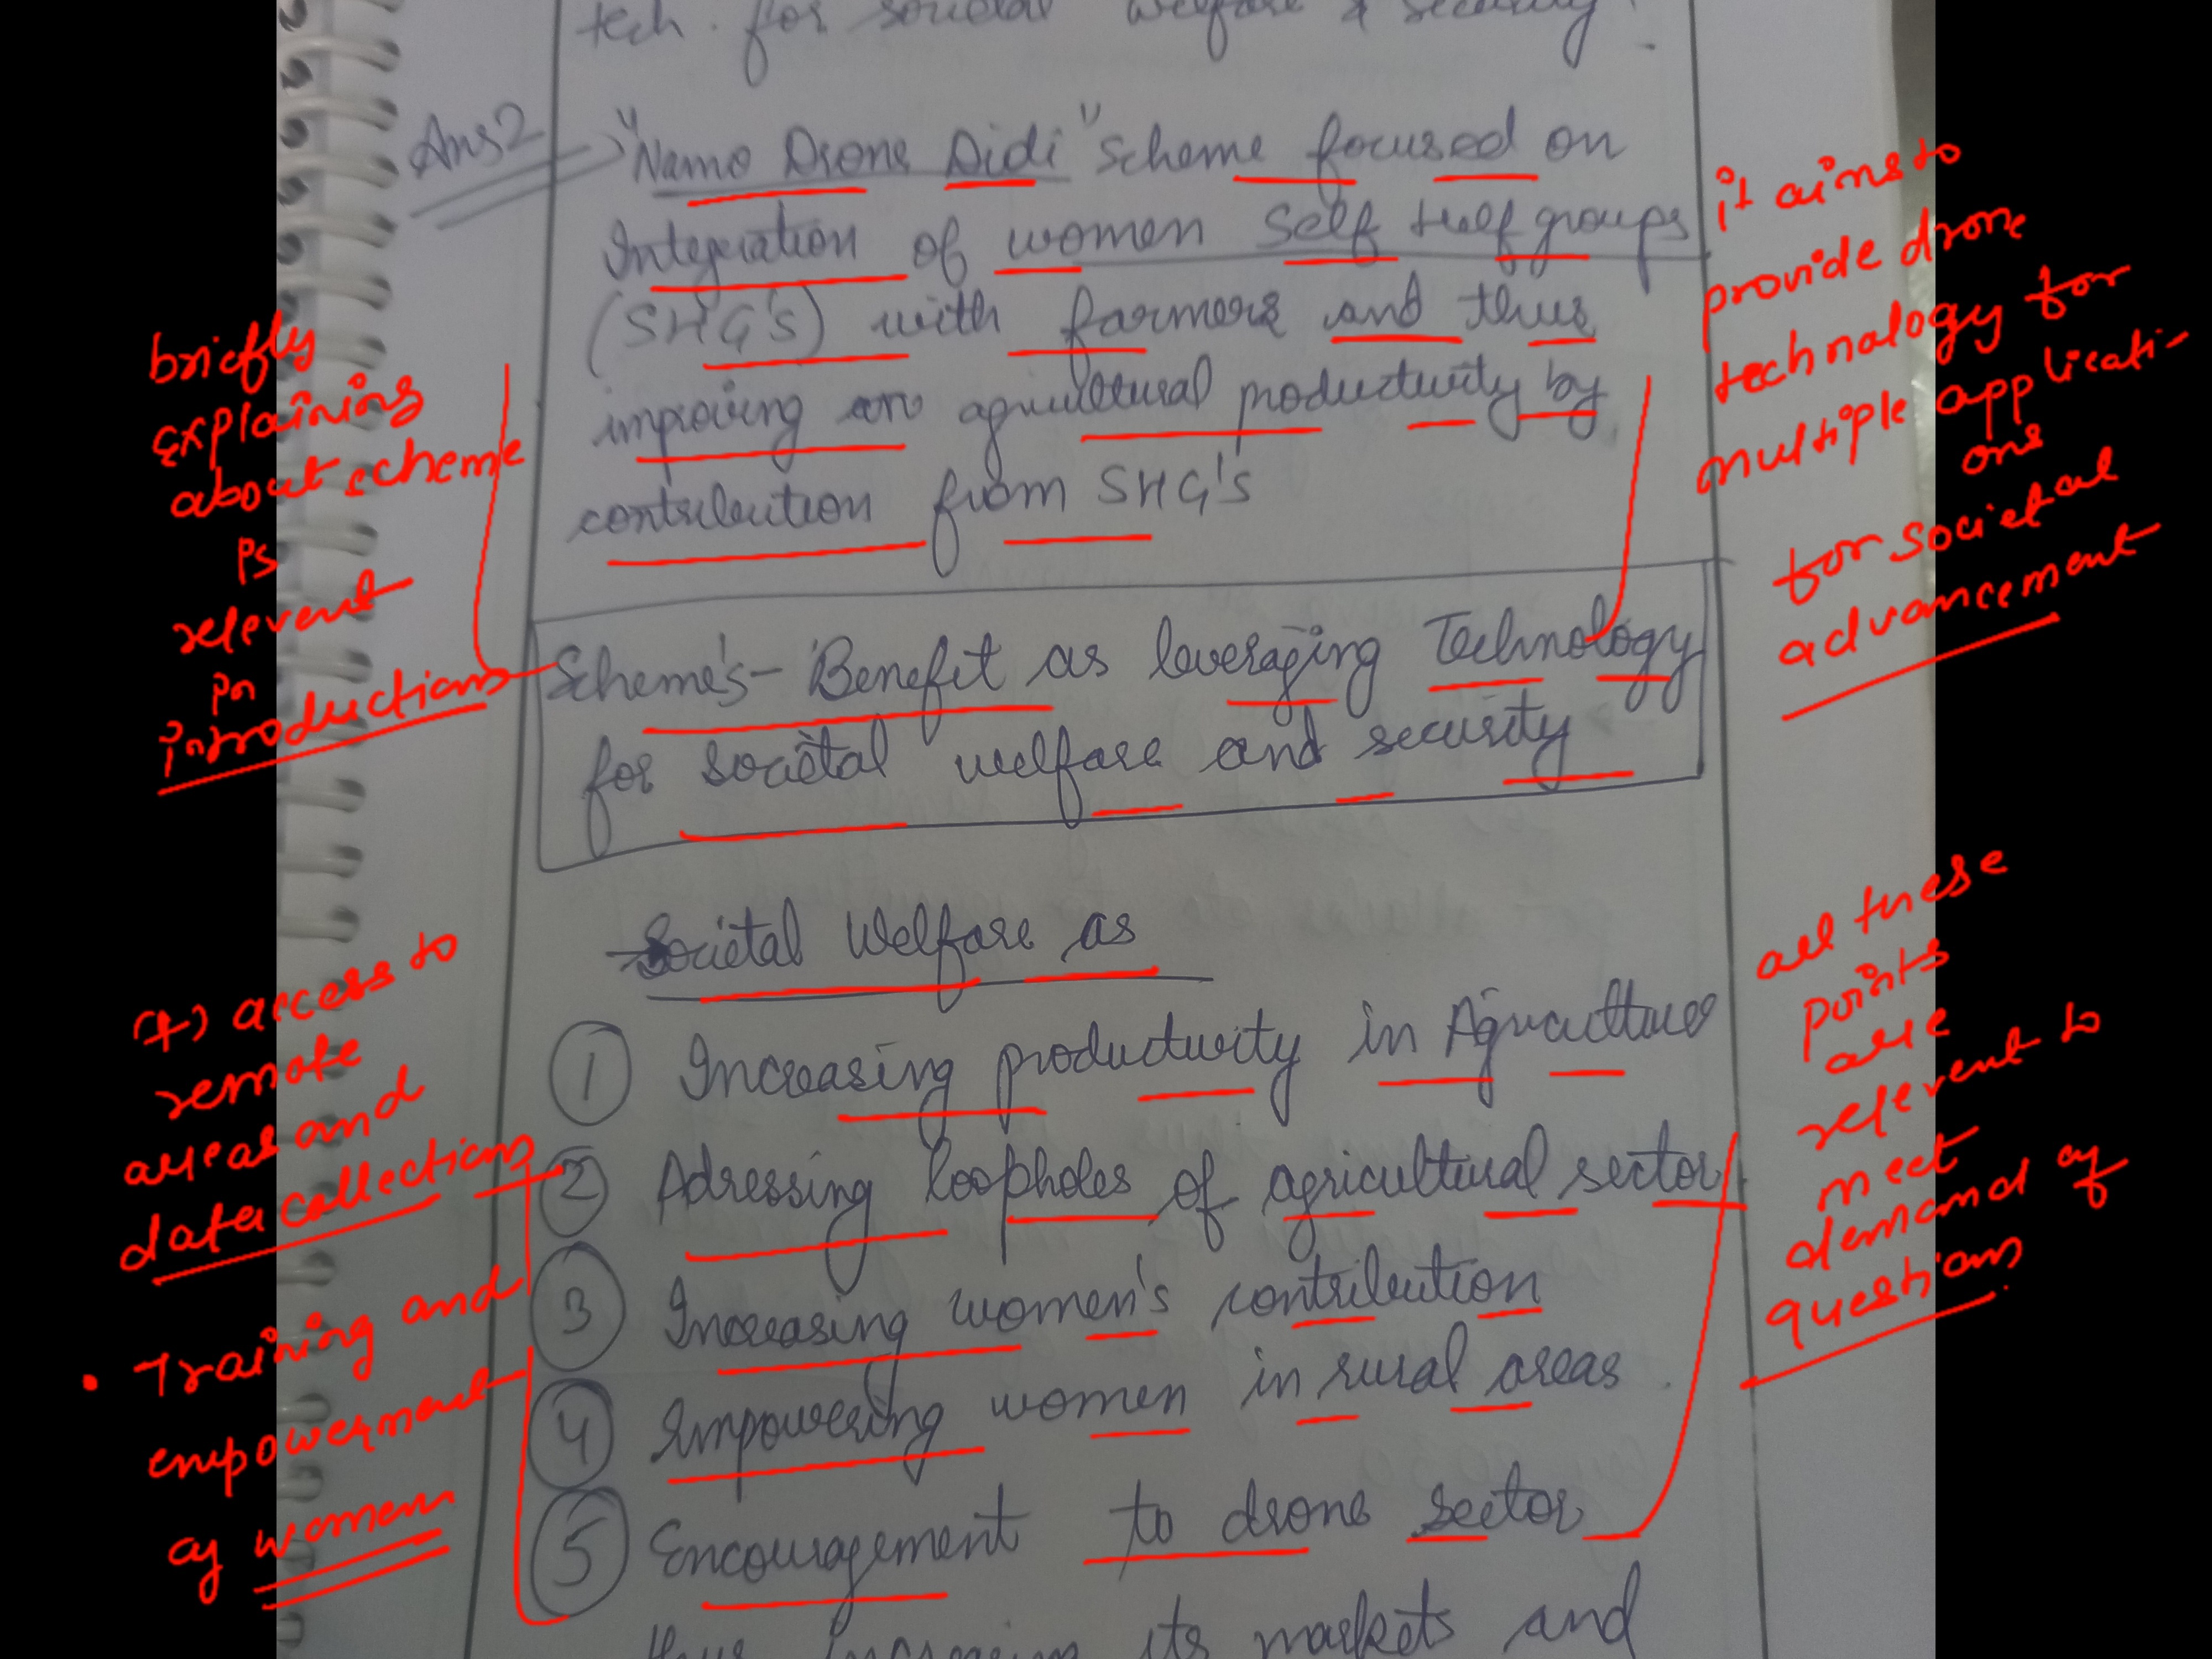 tech. for societal welfare & security.
Ans2
"Namo Drone Didi" scheme focused on
Integration of women Self Help groups
(SHG's) with farmers and thus
improving agricultural productivity by
contribution from SHG's
Scheme's - Benefit as leveraging Technology
for societal welfare and security
Societal Welfare as
① Increasing productivity in Agriculture
② Adressing loopholes of agricultural sector
③ Increasing women's contribution
④ Empowering women in rural areas.
⑤ Encouragement to drone sector
thus increasing its markets and
briefly
explaining
about scheme
is
relevent
in
introductions
it aims to
provide drone
technology for
multiple applicati-
ons
for societal
advancement
(+) access to
remote
areas and
data collections
• Training and
empowerment
of women
all these
points
are
relevent to
meet
demand of
question.